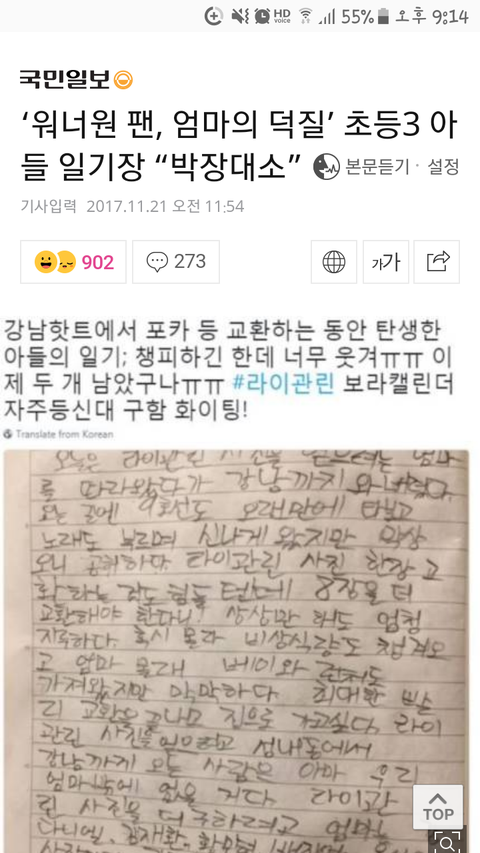 HD voice 55% 오후 9:14
국민일보
‘워너원 팬, 엄마의 덕질’ 초등3 아
들 일기장 “박장대소” 본문듣기 · 설정
기사입력 2017.11.21 오전 11:54
902 273 가가
강남핫트에서 포카 등 교환하는 동안 탄생한
아들의 일기; 챙피하긴 한데 너무 웃겨ㅠㅠ 이
제 두 개 남았구나ㅠㅠ #라이관린 보라캘린더
자주등신대 구함 화이팅!
Translate from Korean
오늘은 라이관린 사진을 엄마
를 따라왔다가 강남까지 와버렸다.
오는 길에 오래만에 타고
노래도 부르며 신나게 왔지만 막상
오니 라이관린 사진 한장 교
환하는 것도 힘들 텐데 8장을 더
교환해야 한다니! 상상만 해도 엄청
지루하다. 혹시 몰라 비상식량도 챙겨오
고 엄마 몰래
가져왔지만 막막하다. 최대한 빨
리 교환을 끝나고 집으로 가고싶다. 라이
관린 사진을 얻으려고 성내동에서
강남까지 오는 사람은 아마 우리
엄마밖에 없을 거다. 라이관
린 사진을 더 구하려고 엄마는
다니엘, 김재환, 황민현
TOP